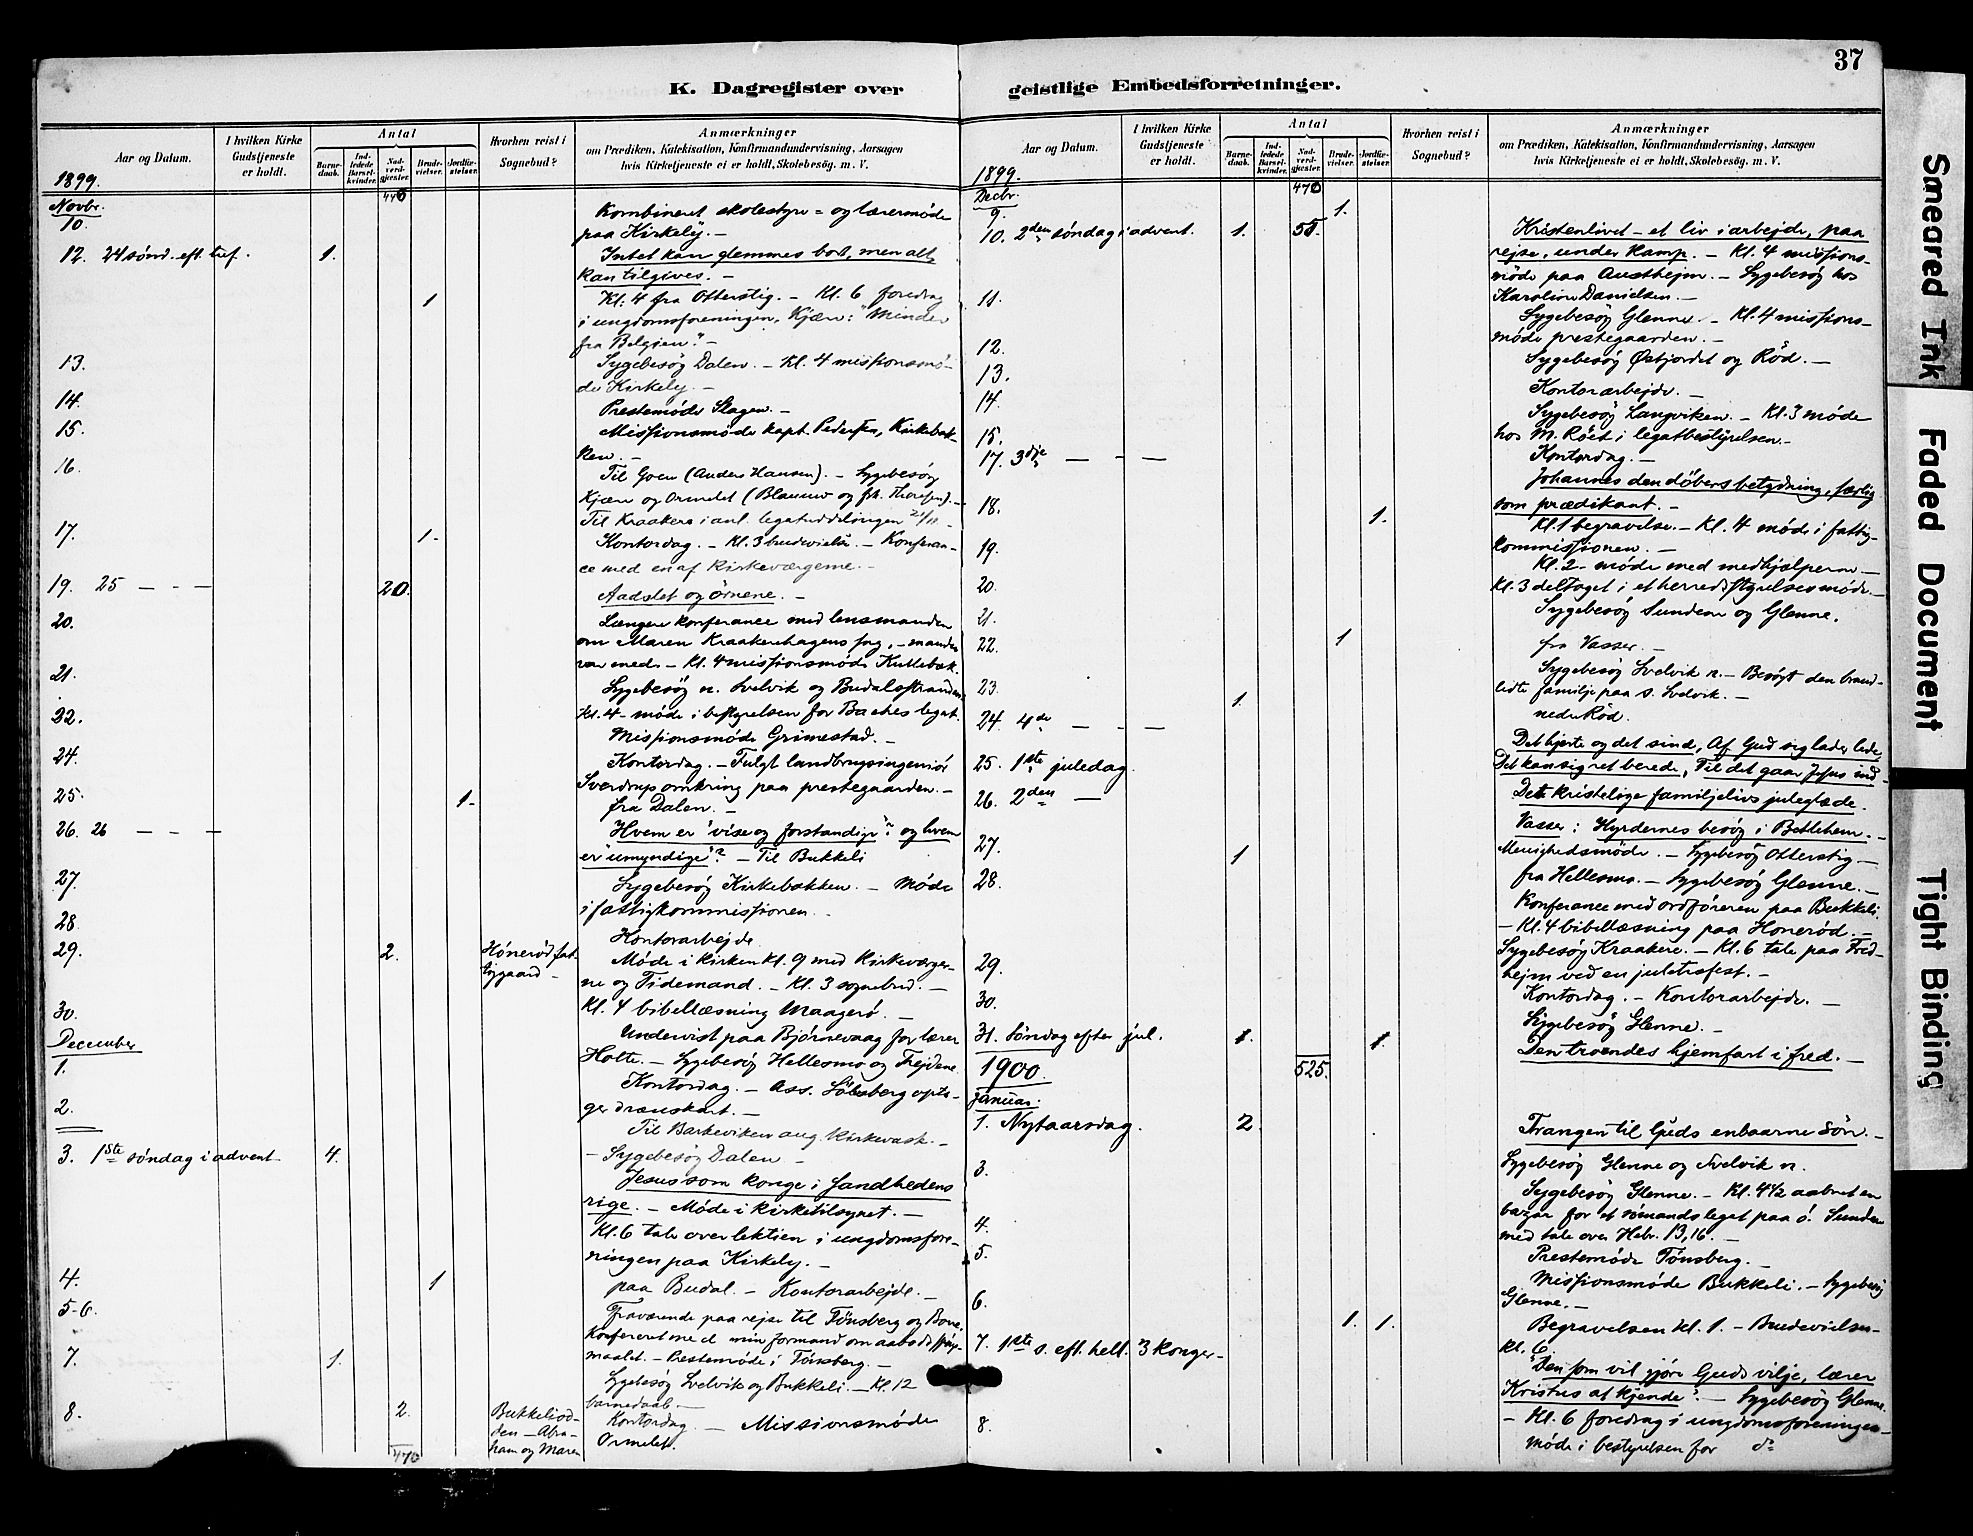 37
K. Dagregister over
geistlige Embedsforretninger.
Aar og Datum.
I hvilken Kirke Gudstjeneste er holdt.
Antal
Barnedaab.
Indledede Barselkvinder.
Nadverdgjæster.
Brudevielser.
Jordfæstelser.
Hvorhen reist i Sognebud?
Anmærkninger
om Prædiken, Katekisation, Konfirmandundervisning, Aarsagen
hvis Kirketjeneste ei er holdt, Skolebesøg. m. V.
1899.
Novbr.
10. Kombineret skolestyre- og lærermøde
paa Kirkely. —
12. 24 sønd. eft. tref. 1. Intet kan glemmes bort, men alt
kan tilgives. —
1 Kl. 4 fra Otterstig. — Kl. 6 foredrag
i ungdomsforeningen, Kjære: "Minder
fra Belgien". —
13. Sygebesøg Dalen. — Kl. 4 missionsmø-
de Kirkely. —
14. Prestemøde Slagen. —
15. Missionsmøde kapt. Pedersen, Kirkebak-
ken. —
16. Til Goen (Anders Hansen). — Sygebesøg
Kjære og Ormelet (Blaauw og fh. Thoresen). —
Til Kraakere i anl. legatuddelingen 21/11 —
17. 1. Kontordag. — Kl. 3 brudevielse. — Konferan-
ce med en af Kirkeværgerne. —
19. 25 — — — 20. Aadslet og ørnene. —
20. Længere konferance med lensmanden
om Maren Kraakerehagens sag, — manden
var med. — Kl. 4 missionsmøde Kullebæk.
21. Sygebesøg n. Svelvik og Budalsstranden
Kl. 4 møde i bestyrelsen for Baches legat.
22. Missionsmøde Grimestad. —
24. Kontordag. — Fulgt landbrugsingeniør
Sverdrup omkring paa prestegaarden. —
25. 1. fra Dalen. —
26. 26 — — — Hvem er "vise og forstandige"? og hvem
er "umyndige"? — Til Bukkeli
27. Sygebesøg Kirkebakken. — Møde
i fattigkommissionen. —
28. Kontorarbejde.
29. 2. Hønerød fat-
tiggaard — Møde i Kirken Kl. 9 med Kirkeværger-
ne og Tidemand. — Kl. 3 sognebud. —
Kl. 4 bibellæsning Maagerø. —
30. Undervist paa Bjørnevaag for lærer
Holte. — Sygebesøg Hellesmo og Frejdene.
December
1. Kontordag. — Ass. Sølsberg opta-
ger drænskart. —
2. Til Barkeviken ang. Kirkevask. —
— Sygebesøg Dalen —
3. 1ste søndag i advent 4. Jesus som konge i Sandhedens
rige. — Møde i Kirketilsynet. —
Kl. 6 tale over lektien i ungdomsfore-
ningen paa Kirkely. —
4. 1 paa Budal. — Kontorarbejde. —
5-6. Fraværende paa rejse til Tønsberg og Borre.
Konfereret med min formand om aabodsspørs-
maalet. — Prestemøde i Tønsberg. —
7. 1. Sygebesøg Svelvik og Bukkeli. — Kl. 12
barnedaab —
8. 2. Bukkeliod-
den — Abra-
ham og Maren Kontordag — Missionsmøde
Ormelet.
470
Aar og Datum.
I hvilken Kirke Gudstjeneste er holdt.
Antal
Barnedaab.
Indledede Barselkvinder.
Nadverdgjæster.
Brudevielser.
Jordfæstelser.
Hvorhen reist i Sognebud?
Anmærkninger
om Prædiken, Katekisation, Konfirmandundervisning, Aarsagen
hvis Kirketjeneste ei er holdt, Skolebesøg. m. V.
1899. 470
Decbr.
9. 1.
10. 2den søndag i advent. 1. 55. Kristenlivet — et liv i arbejde, paa
rejse, under Kamp. — Kl. 4 missions-
møde paa Austhejm. — Sygebesøg hos
Karoline Danielsen. —
11. Sygebesøg Glenne. — Kl. 4 missions-
møde prestegaarden. —
12. Sygebesøg Østjordet og Rød. —
13. Kontorarbejde. —
14. Sygebesøg Langviken. — Kl. 3 møde
hos M. Røet i legatbestyrelsen. —
15. Kontordag. —
17. 3dje — — — Johannes den døbers betydning, særlig
som prædikant. —
18. 1. Kl. 1 begravelse. — Kl. 4 møde i fattig-
kommissionen. —
19. Kl. 2 møde med medhjælperne —
Kl. 3 deltaget i et herredsstyrelsesmøde. —
20. Sygebesøg Sundene og Glenne.
21.
22. 1 fra Vasser. —
Sygebesøg Svelvik n. — Besøgt den brand-
lidte familje paa s. Svelvik. —
23. 1. nedre Rød.
24. 4de — — Det hjerte og det sind, Af Gud sig lader lede
Det kan sig ret berede, Til det gaar Jesus ind —
25. 1ste juledag. Det kristelige familjelivs juleglæde.
26. 2den — Vasser: Hyrdernes besøg i Betlehem. —
Menighedsmøde. — Sygebesøg Otterstig. —
27. 1 fra Hellesmo. — Sygebesøg Glenne. —
28. Konferance med ordføreren paa Bukkeli.
— Kl. 4 bibellæsning paa Hønerød. —
Sygebesøg Kraakere. — Kl. 6 tale paa Fred-
hejm ved en juletræfest. —
29. Kontordag. — Kontorarbejde. —
30. Sygebesøg Glenne. —
31. Søndag efter jul. 1. 1. Den troendes hjemfart i fred. —
525.
1900.
Januar.
1. Nytaarsdag. 2. Trangen til Guds enbaarne Søn. —
3. Sygebesøg Glenne og Svelvik n.
Sygebesøg Glenne. — Kl. 4½ aabnet en
bazar for et sømandslegat paa ø. Sunden
med tale over Hebr. 13,16. —
4. Prestemøde Tønsberg. —
5. Missionsmøde Bukkeli. — Sygebesøg
Glenne. —
6. 1. 1. Begravelsen Kl. 1. — Brudevielsen
Kl. 6.
7. 1ste s. eft. hell. 3 Konger — "Den som vil gjøre Guds vilje, lærer
Kristus at kjende". — Sygebesøg Glenne.
— Kl. 6 foredrag i ungdomsforeningen —
8. Møde i bestyrelsen for do
Smeared Ink
Faded Document
Tight Binding